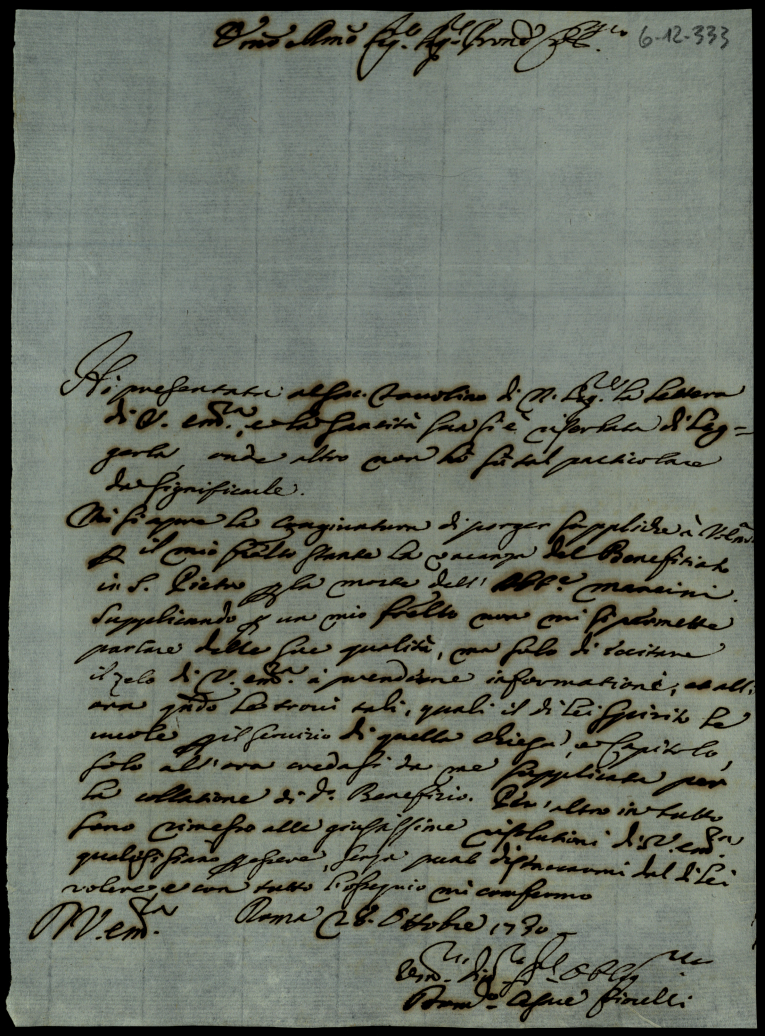 6-12-333
Ho presentata al Sac. Tavolino di N. Sig.re la lettera
di V. em.za, e la Santità Sua si è riserbata di leg=
gerla, onde altro non hò sù tal particolare
da significarle.
Mi si apre la congiuntura di porger suppliche à
il mio frello stante la vacanza del Benefitiato
in S. Pietro la morte dell' Abb.e Mancini.
Supplicando un mio frello non mi si permette
parlare delle sue qualità, ma solo di eccitare
il zelo di V. em.za à prenderne informationi, et all'
ora qndo le trovi tali, quali il di lei spirito le
vuole il servizio di quella Chiesa, e Capitolo,
solo all'ora credasi da me supplicata per
la collatione di d.o Benefizio. Per altro in tutto
sono rimesso alle giustissime risolutioni di V. em.za
qualsisiano essere, senza punto distaccarmi dal di lei
volere, e con tutto l'ossequio mi confermo
D V. em.za Roma 28. Ottobre 1730